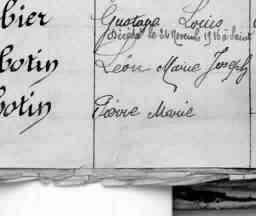 bier Gustave Louis
décédé le 24 Novemb 1916 à Saint
botin Léon Marie Joseph
botin Pierre Marie